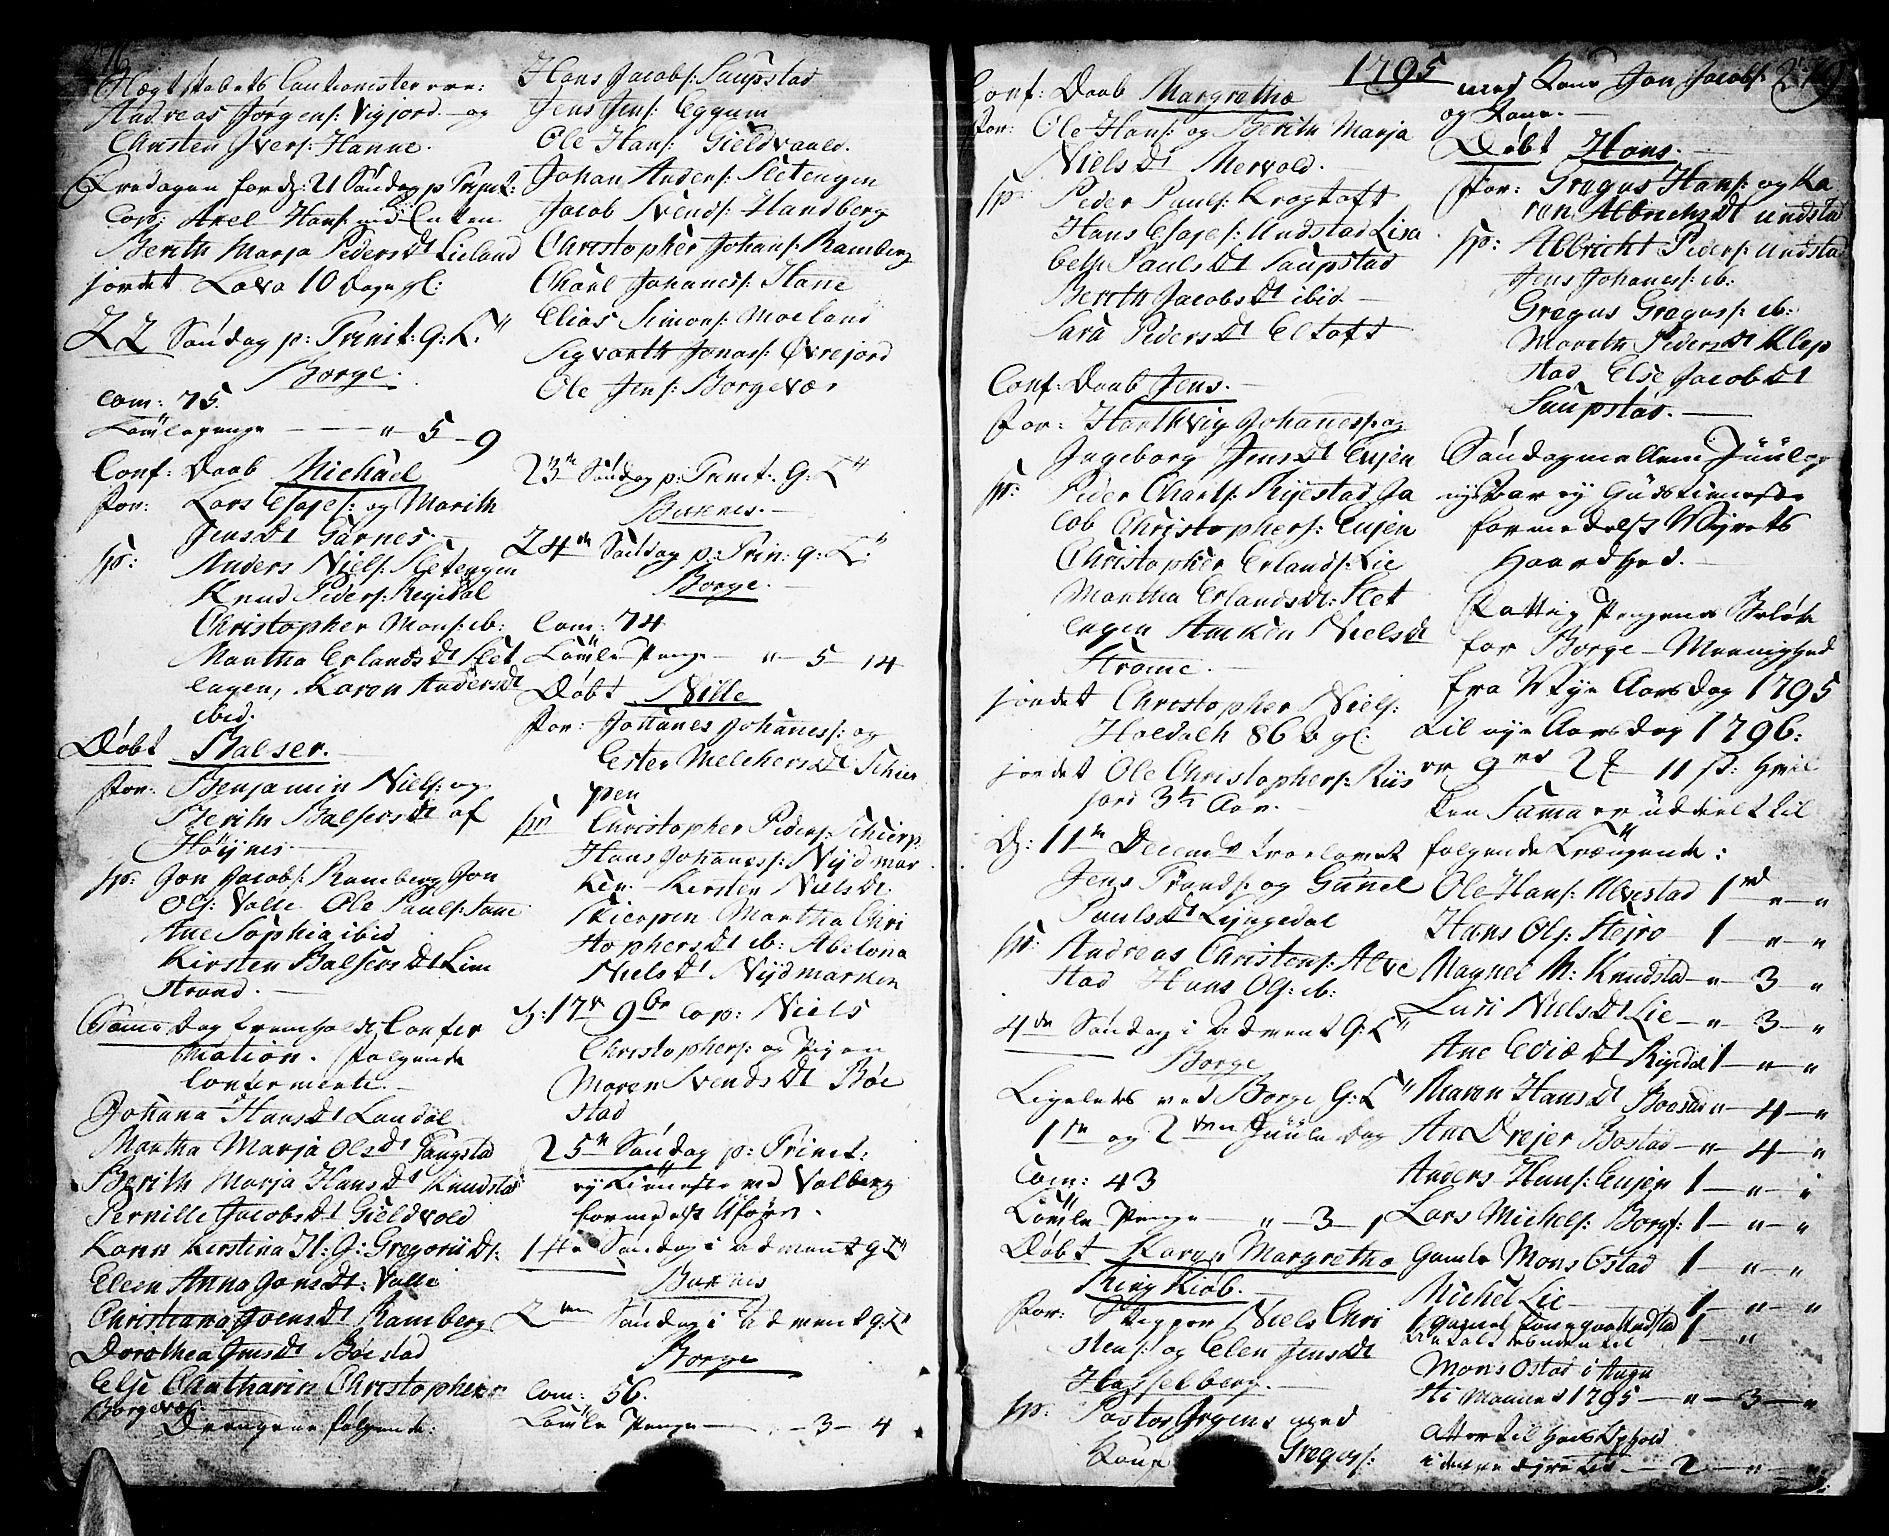 Ægteskabets Cautionister var:
Andreas Jørgens: Vigjord og
Christen Ivers: Hanne.
Løverdagen for 21 Søndag p Trinit:
Cop: Axel Hans: med Enken
Berith Marja Peders Dt Lieland
jordet Lava 10 Dage gl:
22 Søndag p: Trinit: G: T:
Borge.
Com: 75.
Tavlepenge — " 5 - 9
Conf: Daab Michael
For: Lars Esajes: og Marith
Jens Dt Garnes
sp: Anders Niels: Sletengen
Knud Peders: Reijedal
Christopher Mons: ib:
Martha Erlands Dt Slet
engen, Karen Anders Dt
ibid.
Døbt Balser.
For: Benjamin Niels: og
Berith Balsers Dt af
Høÿnes
sp: Jon Jacobs: Ramberg Jon
Ols: Valle Ole Pauls: Sand
Ane Sophia ibid
Kirsten Balsers Dt Lim
strand.
Samme Dag fremholdt Confir
mation. Følgende
Confirmerte.
Johana Hans Dt Landål
Martha Marja Ols Dt Tangstad
Berith Marja Hans Dt Knudstad
Pernille Jacobs Dt Gieldvold
Karen Kirstina H: G: Gregorii Dt:
Eleen Anna Jons Dt: Valle
Christiana Joens Dt Ramberg
Dorothea Jens Dt Bøestad
Else Chatharin Christophers
Borgevær.
Drengene følgende:
Hans Jacobs: Saupstad
Jens Jens: Eggum
Ole Hans: Gieldvaald.
Johan Anders: Sletengen
Jacob Svends: Handberg
Christopher Johans: Ramberg
Charl Johanes: Hane
Elias Simons: Moeland
Sigvarth Jonas: Øvrejord
Ole Jens: Borgevær
23de Søndag p: Trinit: G: T:
Buxnes.
24de Søndag p: Trin: G: T:
Borge.
Com: 74
Tavle Penge — " 5 - 14
Døbt Nille
For: Johanes Johanes: og
Ester Melchers Dt Schier
pen
sp: Christopher Peders: Schierp
Hans Johanes: Nÿdmar
ken Kirsten Niels Dt:
Skierpen Martha Chri
stophers Dt ib: Abelona
Niels Dt Nÿdmarken
D: 17de 9br Cop: Niels
Christophers: og Pigen
Maren Svends Dt Bøe
stad
25de Søndag p: Trinit:
ej Tieneste ved Valberg
formedelst Uføre.
1ste Søndag i Advent G: T:
Buxnes
2den Søndag i Advent G: T:
Borge
Com: 56.
Tavle Penge — 3 - 4
1795
279
Conf: Daab Margretha
For: Ole Hans: og Berith Marja
Niels Dt Mervold.
sp: Peder Pauls: Krogtoft
Hans Esajes: Undstad Lisa
beth Pauls Dt Saupstad
Berith Jacobs Dt ibid.
Sara Peders Dt Eltoft
Conf: Daab Jens.
For: Harthvig Johanes: og
Ingeborg Jens Dt Eujen
sp: Peder Charls: Rijestad Ja
cob Christophers: Eujen
Christopher Erlands: Lie
Martha Erlands Dt: Slet
engen Anken Niels Dt
Strøme.
jordet Christopher Niels:
Holdalh 86 gl:
jordet Ole Christophers: Riis
fiord 3½ Aar.
D: 11te Decembr trolovet
Jens Tronds: og Gunel
Pauls Dt Lÿngedal
sp: Andreas Christens: Alve
stad Hans Ols: ib:
4de Søndag i Advent G: T:
Borge
Ligeledes ved Borge G: T:
1ste og 2den Juule Dag
Com: 43
Tavle Penge — " 3 - 1
Døbt Karen Margretha
Ring Kiøb.
For: Skipper Niels Chri
stens: og Elen Jens Dt
Hasselberg.
sp: Pastor Irgens med
Kone Gregers:
med Kone Jon Jacobs:
og Kone.
Døbt Hans.
For: Gregus Hans: og Ka
ren Albrichts Dt Undstad
sp: Albricht Peders: Undstad
Jens Johanes: ib:
Gregus Greguss: ib:
Mareth Peders Dt Klep
stad Else Jacobs Dt
Saupstad.
Søndag mellem Juul og
nytaar ej Gudstieneste
formedelst Vejrets
Haardhed.
Fattig Pengenes Beløb
for Borge Meenighed
fra Nÿe Aarsdag 1795
til nye Aarsdag 1796:
er 9 rd 2 11 s: hvil
ken Suma er uddeelt til
følgende Trængende:
Ole Hans: Alvestad 1 rd " - "
Hans Ols: Steiro 1 - " - "
Magnel M: Knudstad - " - 3 - "
Luri Niels Dt Lie - " - 3 - "
Ane Evie Dt Rijedal 1 - " - "
Maren Hans Dt Boestad " - 4 - "
An Drejer Bostad - " - 4 - "
Anders Hans: Eujen 1 - " - "
Lars Michels: Borgf: 1 - " - "
Gamle Mons Ostad 1 - " - "
Michel Lie 1 - " - "
1 gamel Undstad 1 - "
Mons Ostad i Augu
sti Maaned 1795 - " - 3 - "
Atter til hans Ophold
i - 2 - " - "